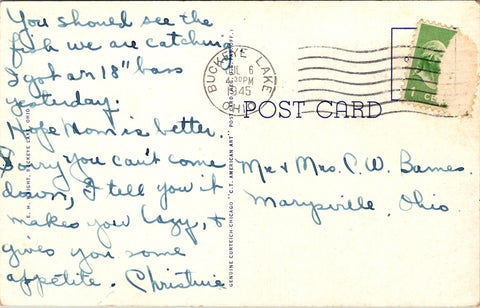 You should see the
fish we are catching
I got an 18" bass
yesterday.
Hope Mom is better.
Sorry you can't come
down, I tell you it
makes you lazy, &
gives you some
appetite. Christine
GENUINE CURTEICH-CHICAGO "C.T. AMERICAN ART"
BUCKEYE LAKE
JUL 6
4:30PM
1945
OHIO
POST CARD
Mr & Mrs. C. W. Barnes.
Marysville, Ohio